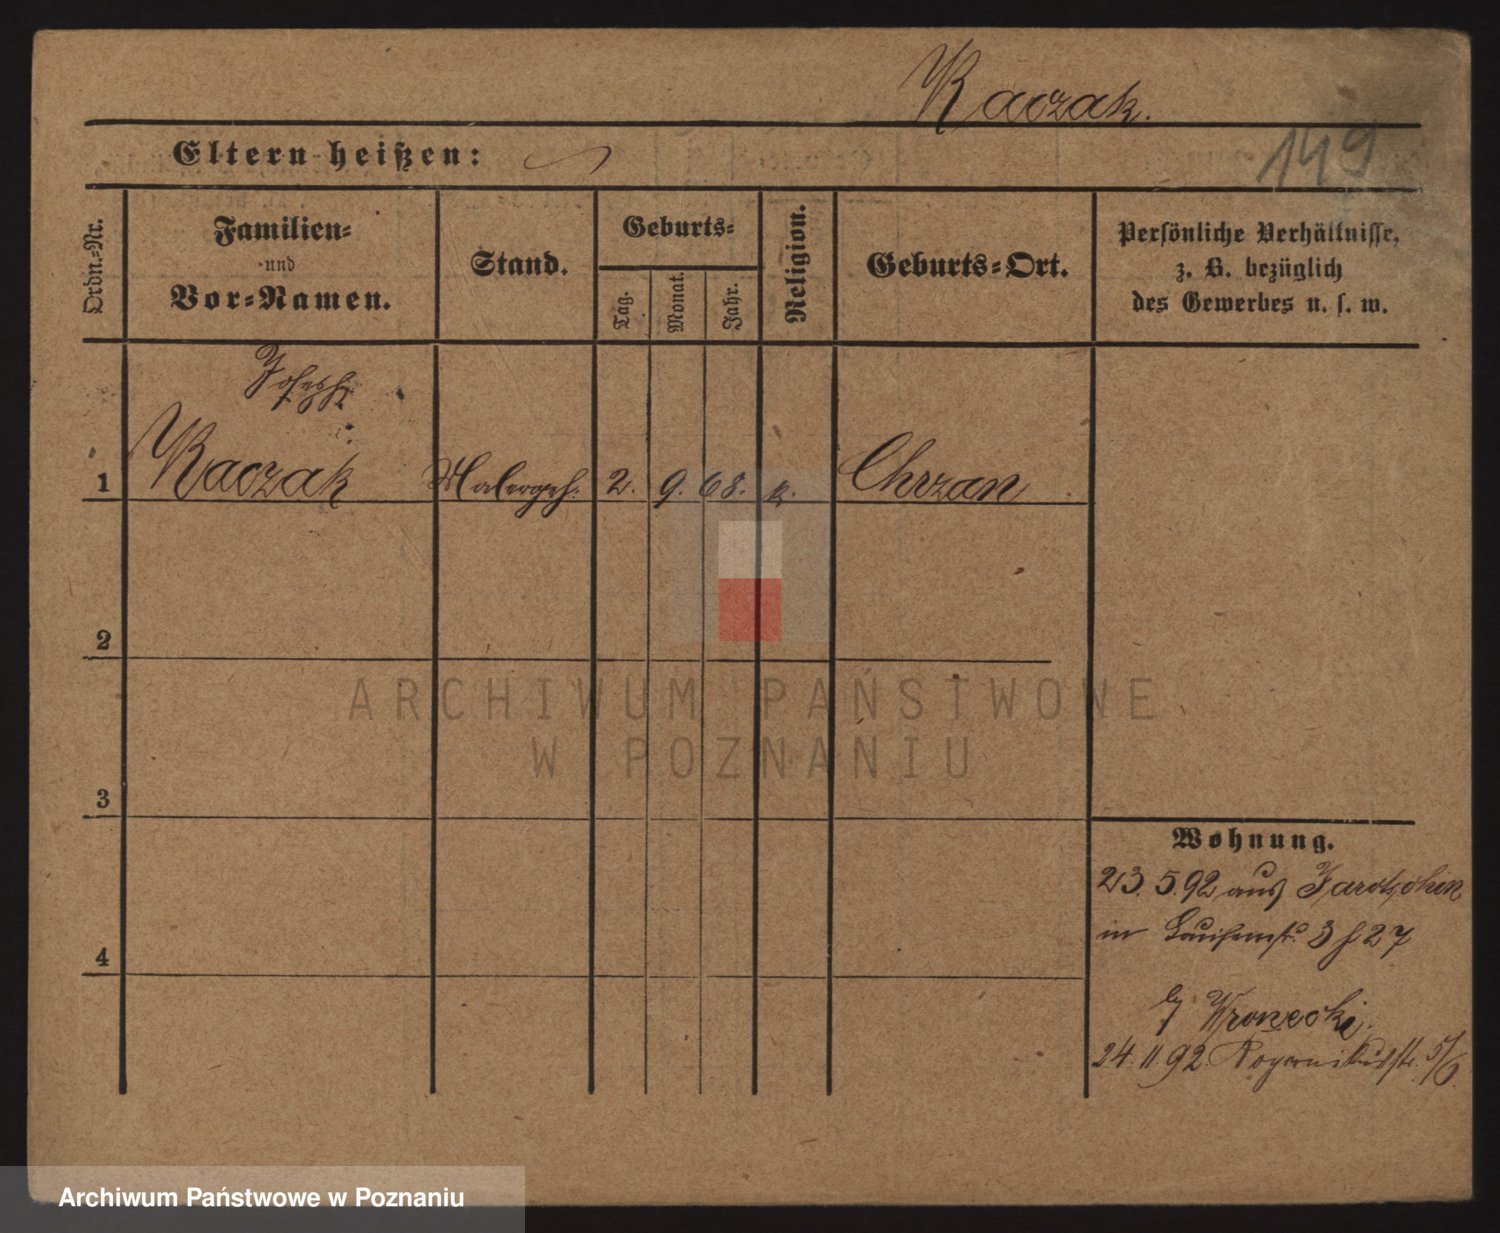 Kaczak.
149
Eltern heißen:
Ordn.-Nr.
Familien-
und
Vor-Namen.
Stand.
Geburts-
Tag.
Monat.
Jahr.
Religion.
Geburts-Ort.
Persönliche Verhältnisse,
z. B. bezüglich
des Gewerbes u. s. w.
Joseph
1 Kaczak Malergeh. 2. 9. 68. k. Chrzan
2
ARCHIWUM PAŃSTWOWE
W POZNANIU
3
Wohnung.
23. 5. 92 aus Jarotschin
in Louisenstr. 3 27
4
Wronecki
24. 11. 92. Kopernikusstr. 5/6
Archiwum Państwowe w Poznaniu